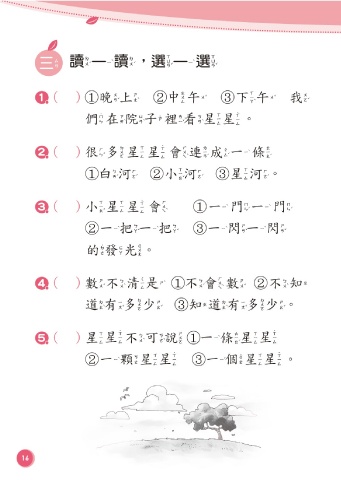 三 讀一讀,選一選
1.( )①晚上 ②中午 ③下午 我
們在院子裡看星星。
2.( )很多星星會連成一條
①白河 ②小河 ③星河。
3.( )小星星會 ①一門一門
②一把一把 ③一閃一閃
的發光。
4.( )數不清是 ①不會數 ②不知
道有多少 ③知道有多少。
5.( )星星不可說①一條星星
②一顆星星 ③一個星星。
16